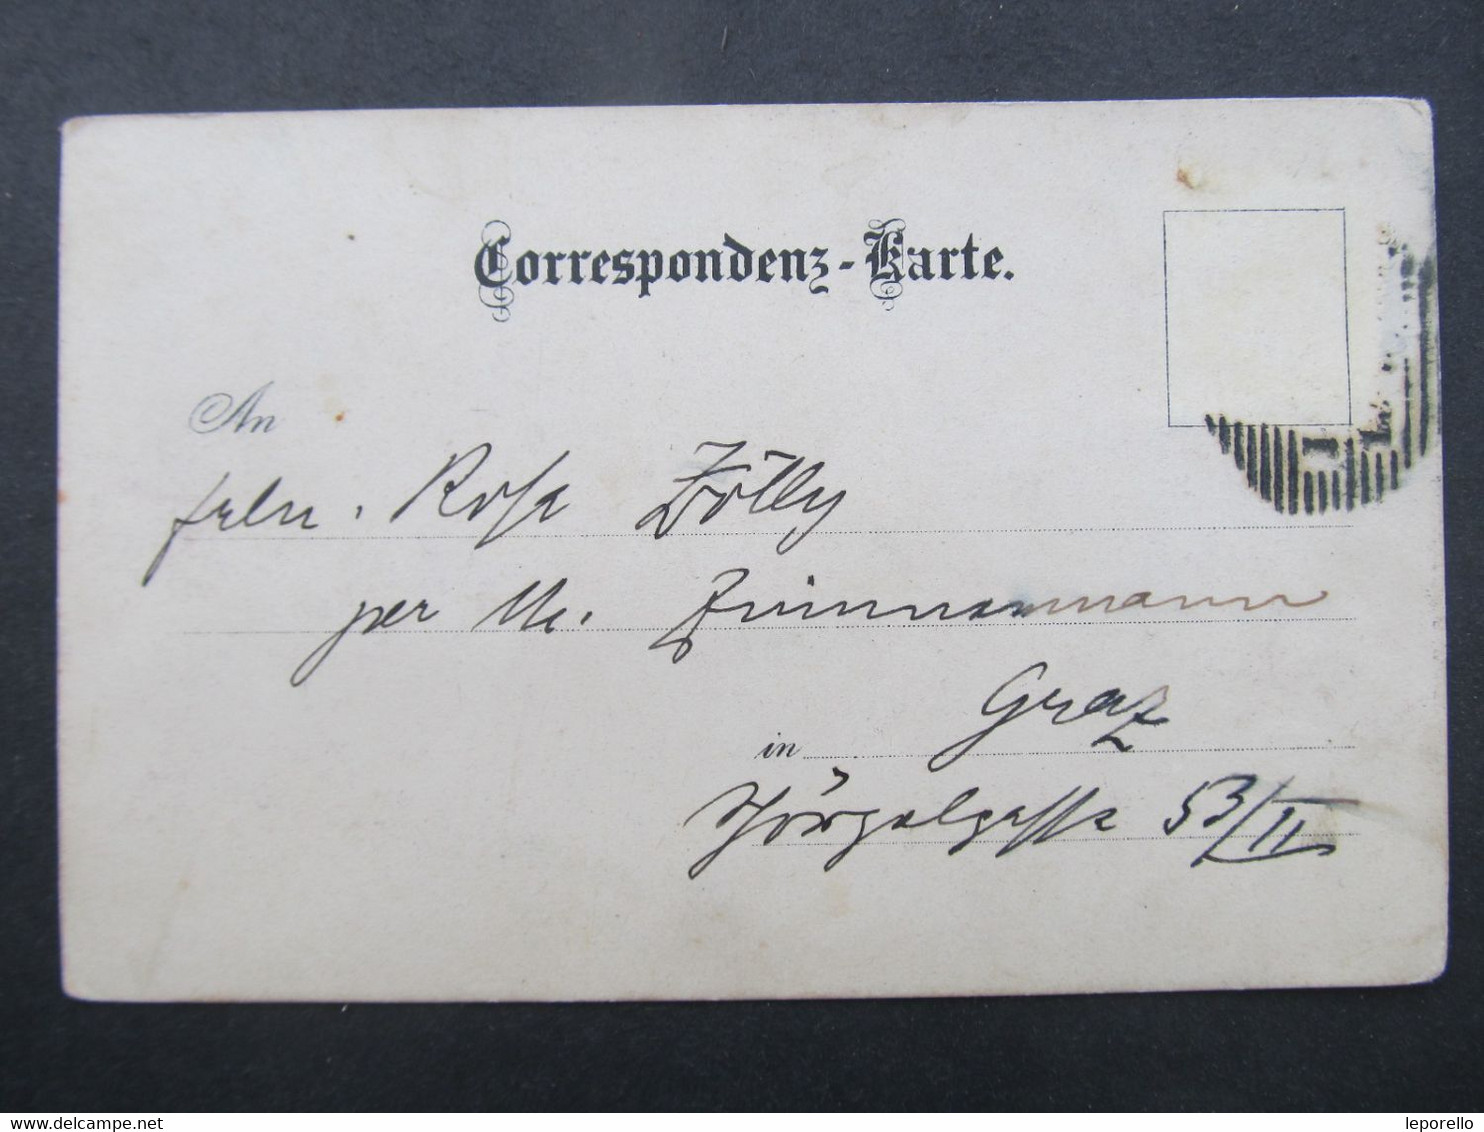 Correspondenz-Karte.
An
Rosa Zölly
per M. Zimmermann
in Graz
Hörgelgasse 53/II
www.delcampe.net
leporello